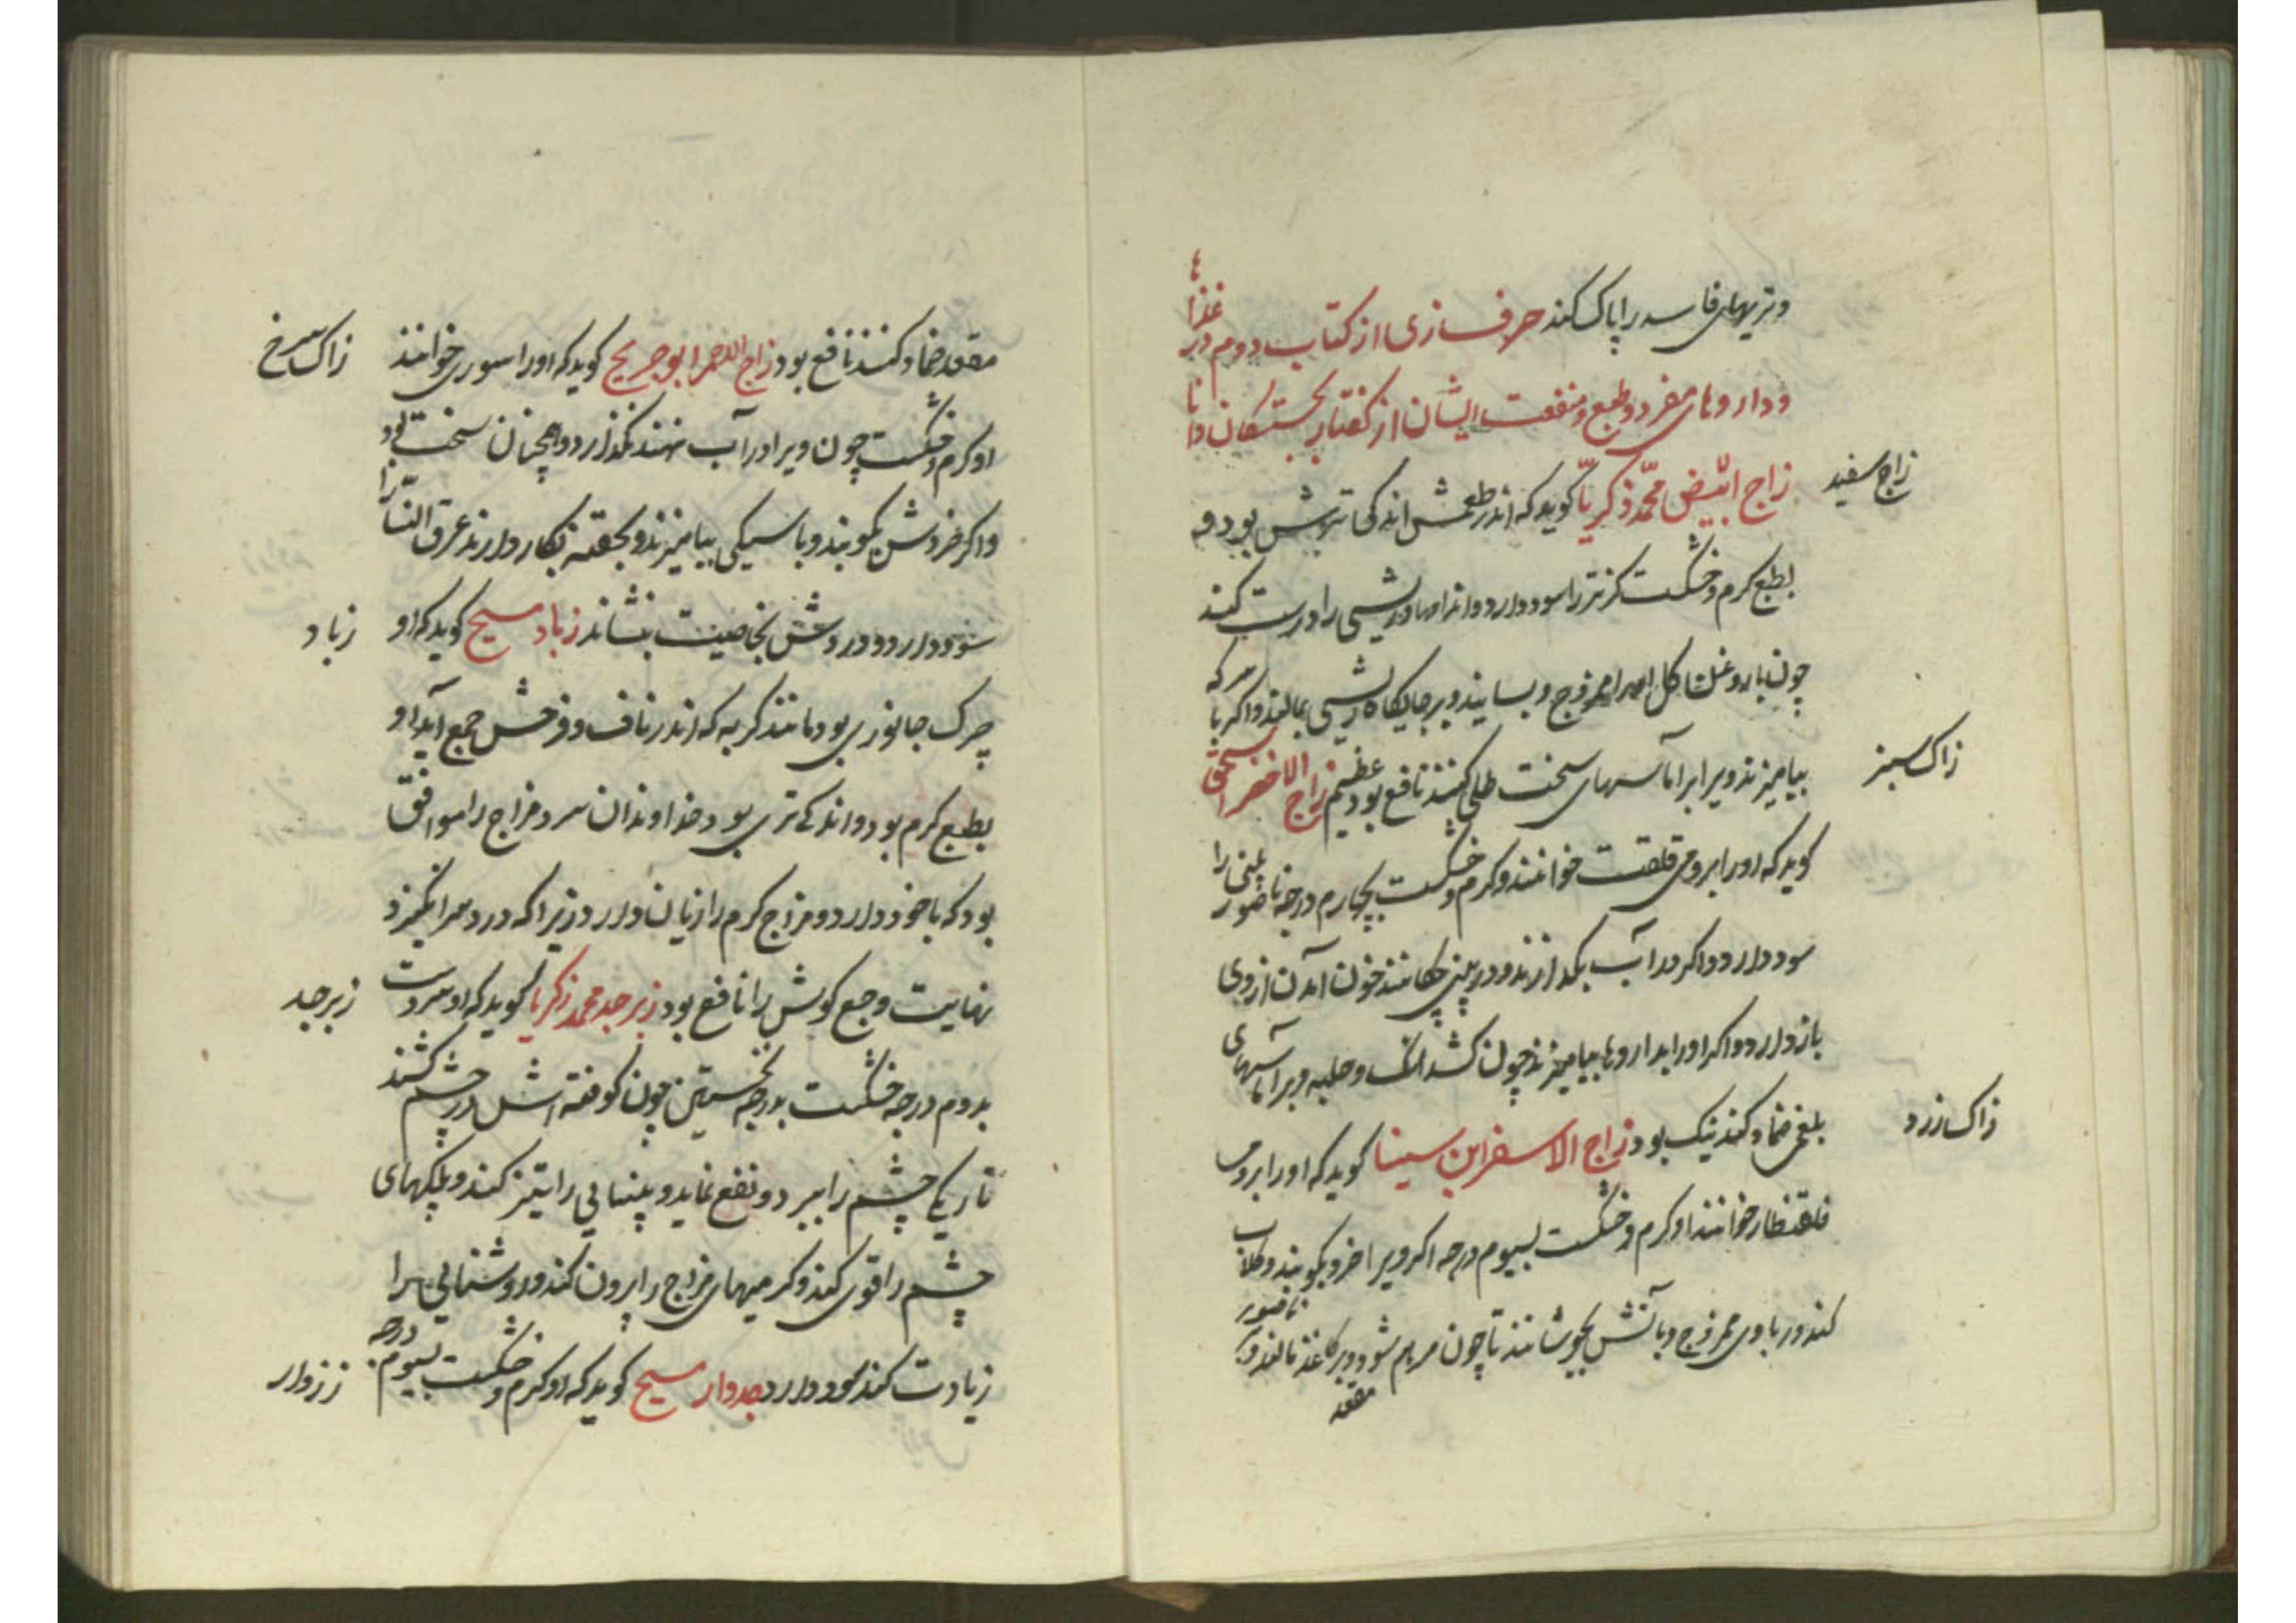 وتریهای فاسد را پاک کند حرف زی از کتاب دوم در غذاها
وداروهای مفرد وطبع ومنفعت ایشان از گفتار خجستگان دانا
زاج سفید
زاج ابیض محمد زکریا کوید که اندر طعمش اندکی ترش بود و
بطبع کرم وخشکست کرتر را سود دارد واندامهاء ریشی را درست کند
چون با روغن کل ممزوج وبسایند وبر جایکاه ریشی بمالند واکر با سرکه
زاک سبز
بیامیزند ویرا بر آماسهای سخت طلی کنند نافع بود عظیم زاج الاخضر اسحق
کوید که اورا برومی قلقت خوانند وکرم وخشکست بچهارم درجه ناصور بینی را
سود دارد واکر در آب بکدازند ودر بینی چکانند خون آمدن از وی
باز دارد واکر اورا بداروها بیامیزند چون کشد انک وحلبه وبر آماسهای
زاک زرد
بلغمی ضماد کنند نیک بود زاج الاسفر ابن سینا کوید که اورا برومی
قلقنطار خوانند او کرم وخشکست بسیوم درجه اکر ویرا خرد بکوبند وکلاب
کند ور باوی ممزوج وبآتش بجوشانند تا چون مرهم شود وبر کاغذ مالند وبر ناصور
مقعد
زاک سرخ
مقعد ضماد کنند نافع بود زاج الاحمر ابو جریح کوید که اورا سوری خوانند
او کرم وخشکست چون ویرا در آب نهند نکدازد وهمچنان سخت بود
واکر خردش بکوبند وبا سیکی بیامیزند وبحقنه بکار دارند عرق النسا را
زباد
سود دارد ودردش بخاصیت بنشاند زباد مسیح کوید که او
چرک جانوری بود مانند کربه که اندر ناف وفرجش جمع آید او
بطبع کرم بود واندکی تری بود خداوندان سرد مزاج را موافق
بود که باخود دارد ومزاج کرم را زیان دارد زیرا که درد سر انکیزد
زبرجد
نهایت وجع کوش را نافع بود زبرجد محمد زکریا کوید که او سردست
بدوم درجه خشکست بدرجه نخستین چون کوفته اش در چشم کشند
تاریکی چشم را ببرد ونفع نماید وبینایی را تیز کند وپلکهای
چشم را قوی کند وکرمیهای مزاج را بیرون کند وروشنایی را
زرزوار
زیادت کند سود دارد جدوار مسیح کوید که او کرم وخشکست بسیوم درجه